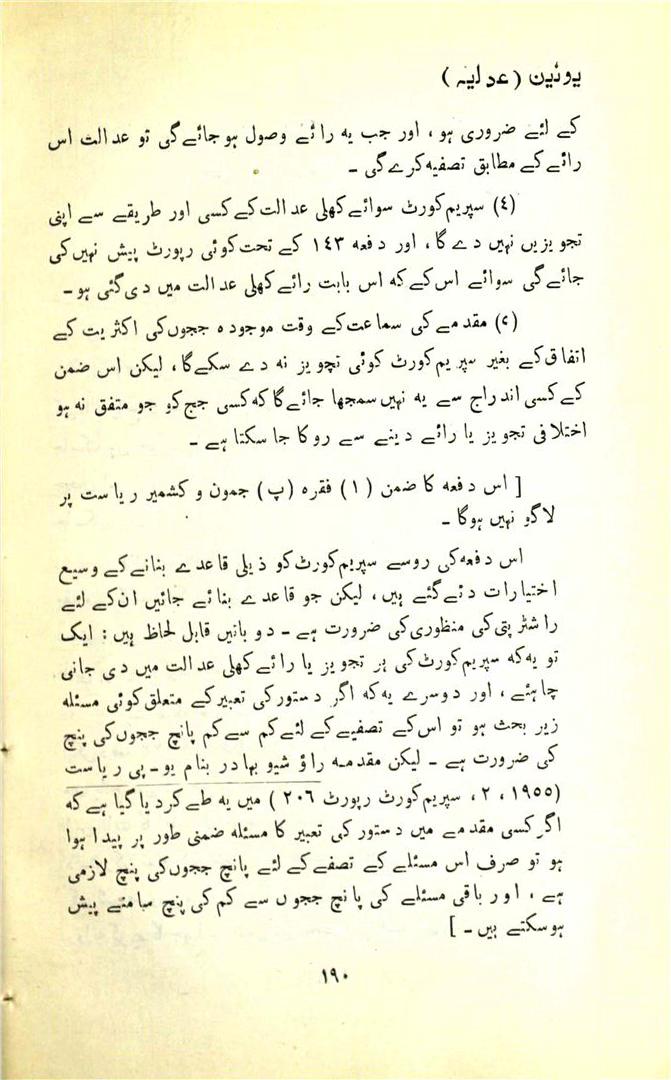 یونین (عدلیہ)
کے لئے ضروری ہو ، اور جب یہ رائے وصول ہو جائے گی تو عدالت اس
رائے کے مطابق تصفیہ کرے گی ۔
(٤) سپریم کورٹ سوائے کھلی عدالت کے کسی اور طریقے سے اپنی
تجویزیں نہیں دے گا ، اور دفعہ ١٤٣ کے تحت کوئی رپورٹ پیش نہیں کی
جائے گی سوائے اس کے کہ اس بابت رائے کھلی عدالت میں دی گئی ہو ۔
مقدمے کی سماعت کے وقت موجودہ ججوں کی اکثریت کے
اتفاق کے بغیر سپریم کورٹ کوئی تجویز نہ دے سکے گا ، لیکن اس ضمن
کے کسی اندراج سے یہ نہیں سمجھا جائے گا کہ کسی جج کو جو متفق نہ ہو
اختلافی تجویز یا رائے دینے سے روکا جا سکتا ہے ۔
[ اس دفعہ کا ضمن (١) فقرہ (پ) جموں و کشمیر ریاست پر
لاگو نہیں ہوگا ۔
اس دفعہ کی رو سے سپریم کورٹ کو ذیلی قاعدے بنانے کے وسیع
اختیارات دئے گئے ہیں ، لیکن جو قاعدے بنائے جائیں ان کے لئے
راشٹرپتی کی منظوری کی ضرورت ہے ۔ دو باتیں قابل لحاظ ہیں : ایک
تو یہ کہ سپریم کورٹ کی ہر تجویز یا رائے کھلی عدالت میں دی جانی
چاہئے ، اور دوسرے یہ کہ اگر دستور کی تعبیر کے متعلق کوئی مسئلہ
زیر بحث ہو تو اس کے تصفیے کے لئے کم سے کم پانچ ججوں کی پنچ
کی ضرورت ہے ۔ لیکن مقدمہ راؤ شیو بہادر بنام یو ۔ پی ریاست
(١٩٥٥ ، ٢ ، سپریم کورٹ رپورٹ ٢٠٦ ) میں یہ طے کر دیا گیا ہے کہ
اگر کسی مقدمے میں دستور کی تعبیر کا مسئلہ ضمنی طور پر پیدا ہوا
ہو تو صرف اس مسئلے کے تصفے کے لئے پانچ ججوں کی پنچ لازمی
ہے ، اور باقی مسئلے کی پانچ ججوں سے کم کی پنچ سامنے پیش
ہوسکتے ہیں ۔ ]
١٩٠